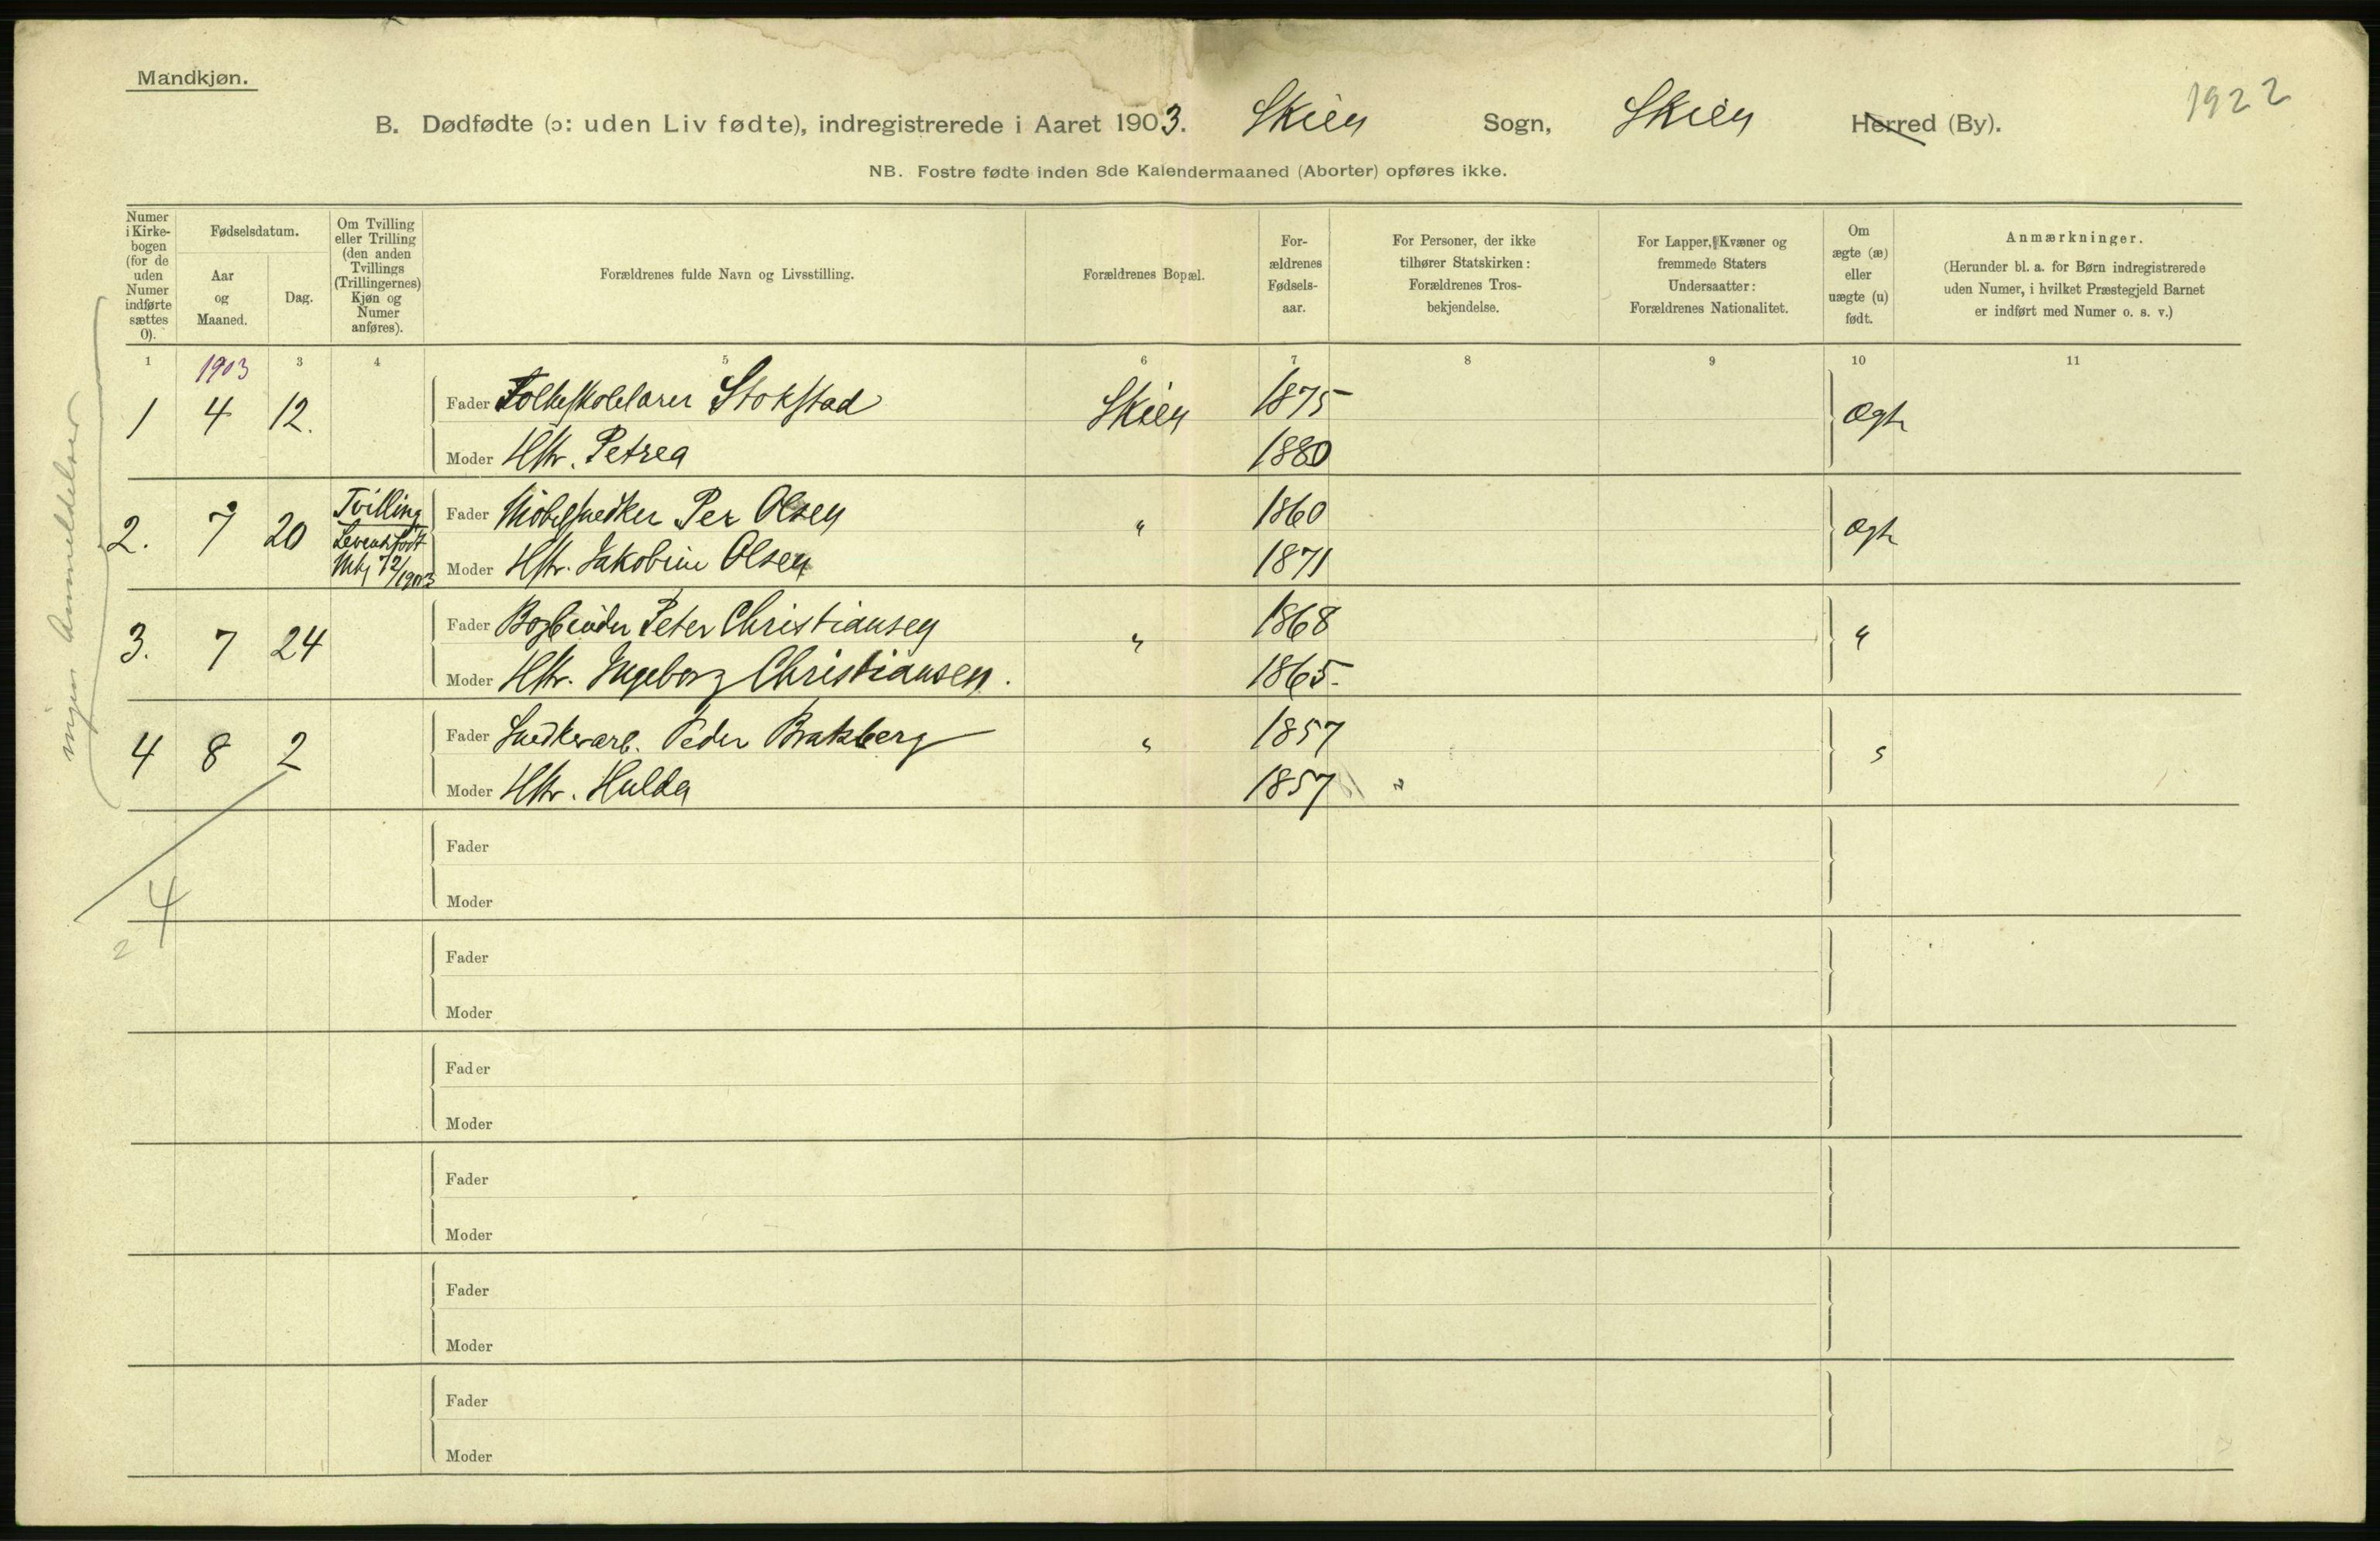 Mandkjøn.
1922
B. Dødfødte (ɔ: uden Liv fødte), indregistrerede i Aaret 1903. Skien Sogn, Skien Herred (By).
NB. Fostre fødte inden 8de Kalendermaaned (Aborter) opføres ikke.
Numer
i Kirke-
bogen
(for de
uden
Numer
indførte
sættes
0).
Fødselsdatum.
Aar
og
Maaned.
Dag.
Om Tvilling
eller Trilling
(den anden
Tvillings
(Trillingernes)
Kjøn og
Numer
anføres).
Forældrenes fulde Navn og Livsstilling.
Forældrenes Bopæl.
For-
ældrenes
Fødsels-
aar.
For Personer, der ikke
tilhører Statskirken:
Forældrenes Tros-
bekjendelse.
For Lapper, Kvæner og
fremmede Staters
Undersaatter:
Forældrenes Nationalitet.
Om
ægte (æ)
eller
uægte (u)
født.
Anmærkninger.
(Herunder bl. a. for Børn indregistrerede
uden Numer, i hvilket Præstegjeld Barnet
er indført med Numer o. s. v.)
1 1903 3 4 5 6 7 8 9 10 11
1 4 12. Fader Folkeskolelærer Stokstad Skien 1875 Ægte
Moder Hstr. Petrea 1880
2. 7 20 Tvilling Fader Möbelsnedker Per Olsen " 1860 Ægte
Levendefödt
Mkj 72/1903 Moder Hstr. Jakobine Olsen 1871
3. 7 24 Fader Bogbinder Peter Christiansen " 1868 "
Moder Hstr. Ingeborg Christiansen. 1865.
4 8 2 Fader Snedkerarb. Peder Brakberg " 1857 "
Moder Hstr. Hulda 1857 "
ingen Anmeldelser
Fader
4
Moder
2
Fader
Moder
Fader
Moder
Fader
Moder
Fader
Moder
Fader
Moder